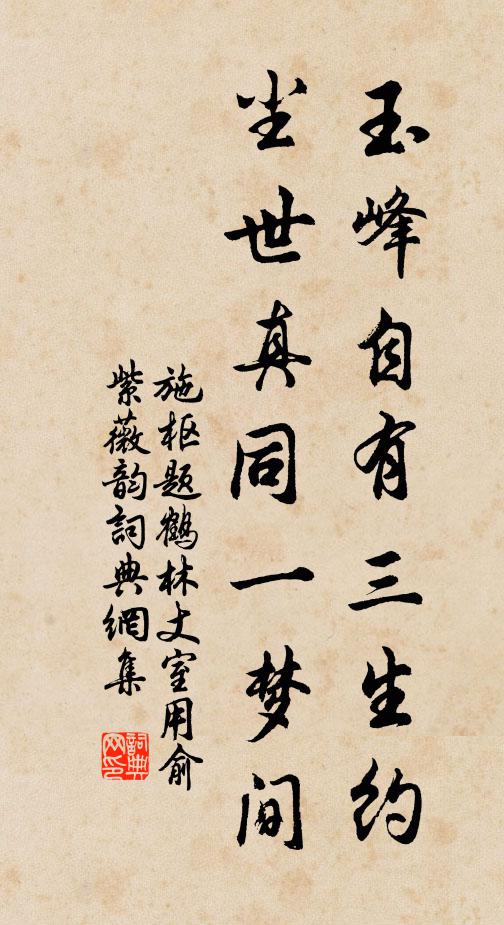 玉峰自有三生约
尘世真同一梦间
施枢题鹤林丈室用俞
紫薇韵詞典網集
詞典
网印